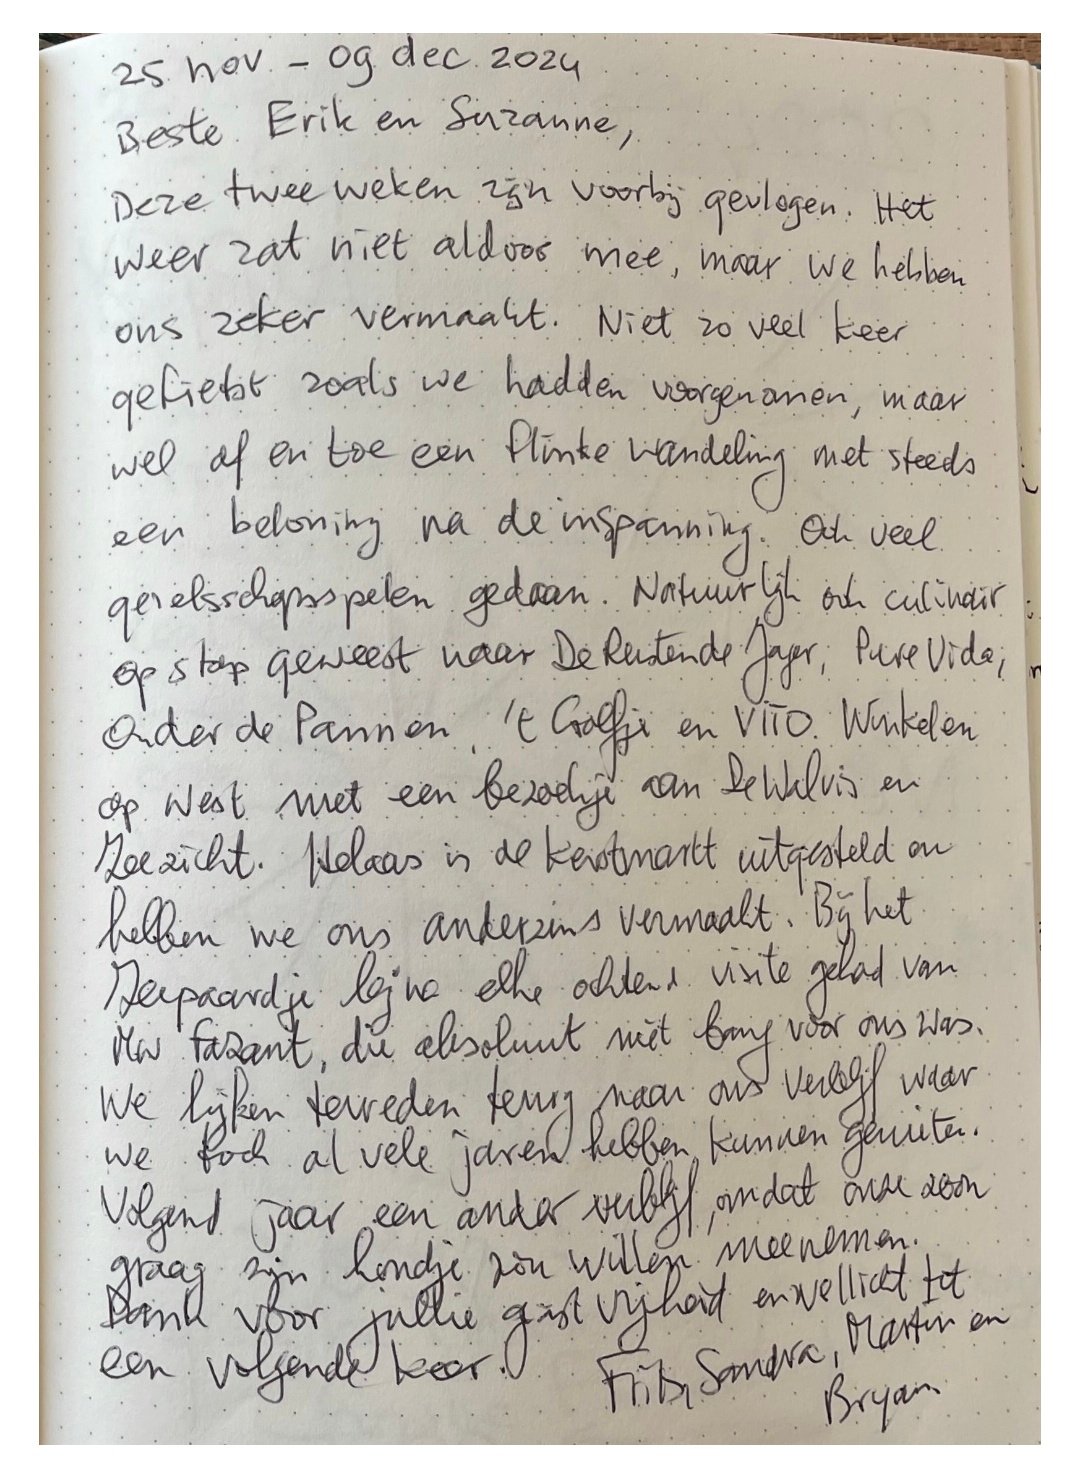 25 nov – 09 dec 2024
Beste Erik en Suzanne,
Deze twee weken zijn voorbij gevlogen. Het
weer zat niet aldoor mee, maar we hebben
ons zeker vermaakt. Niet zo veel keer
gefietst zoals we hadden voorgenomen, maar
wel af en toe een flinke wandeling met steeds
een beloning na de inspanning. Ook veel
gezelsschapsspelen gedaan. Natuurlijk ook culinair
op stap geweest naar De Rustende Jager, Pure Vida,
Onder de Pannen, 't Golfje en VITO. Winkelen
op West met een bezoekje aan De Walvis en
Zeezicht. Helaas is de kerstmarkt uitgesteld en
hebben we ons anderzins vermaakt. Bij het
Zeepaardje bijna elke ochtend visite gehad van
Mw fazant, die absoluut niet bang voor ons was.
We kijken tevreden terug naar ons verblijf waar
we toch al vele jaren hebben kunnen genieten.
Volgend jaar een ander verblijf, omdat onze zoon
graag zijn hondje zou willen meenemen.
Dank voor jullie gastvrijheid en wellicht tot
een volgende keer. Frits, Sandra, Martin en
Bryan